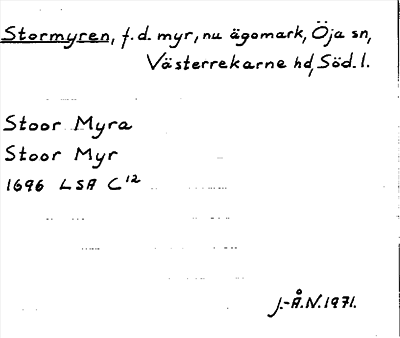 Stormyren, f.d. myr, nu ägomark, Öja sn,
Västerrekarne hd, Söd.l.
Stoor Myra
Stoor Myr
1696 LSA C 12
J.-Å.N. 1971.